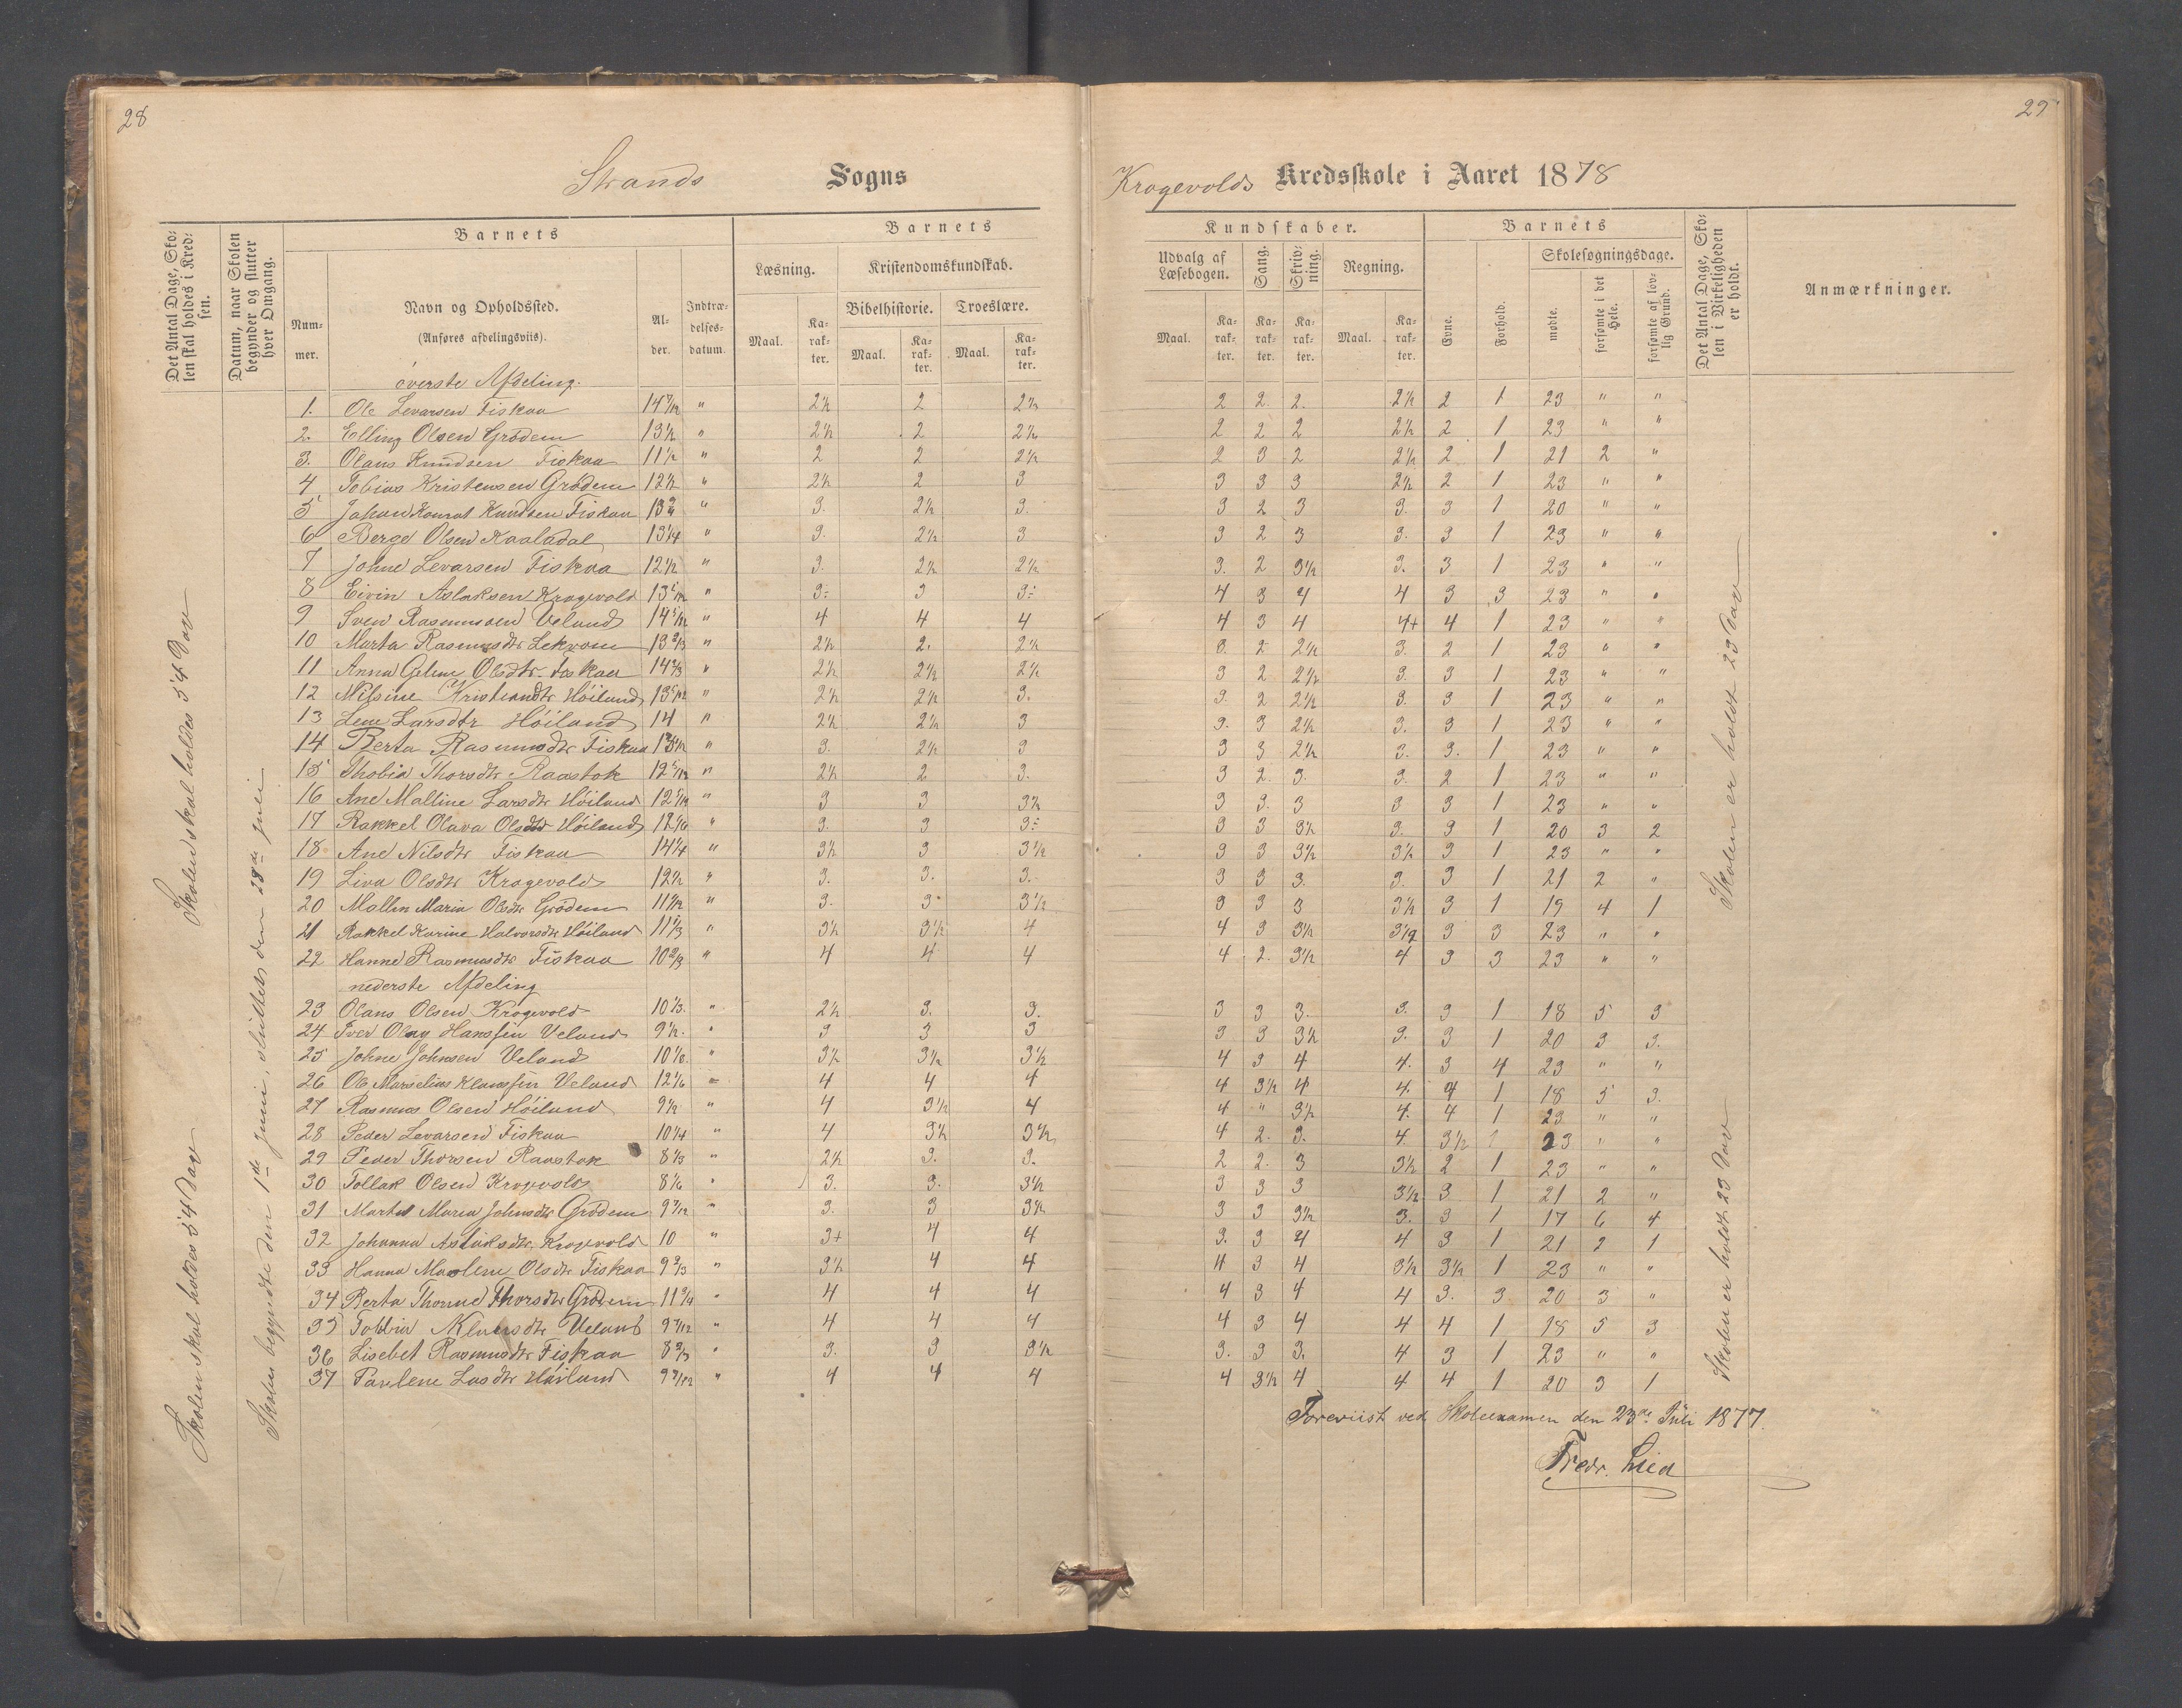 28
29
Strands Sogns
Krogevolds Kredsskole i Aaret 1878
Det Antal Dage, Skolen skal holdes i Kredsen.
Datum, naar Skolen begynder og slutter hver Omgang.
Barnets
Nummer.
Navn og Opholdssted.
(Anføres afdelingsviis).
Alder.
Indtrædelsesdatum.
Barnets
Læsning.
Kristendomskundskab.
Bibelhistorie. Troeslære.
Maal. Karakter. Maal. Karakter. Maal. Karakter.
Kundskaber.
Udvalg af Læsebogen.
Sang.
Skrivning.
Regning.
Maal. Karakter. Karakter. Karakter. Maal. Karakter.
Barnets
Evne.
Forhold.
Skolesøgningsdage.
mødte.
forsømte i det Hele.
forsømte af lovlig Grund.
Det Antal Dage, Skolen i Virkeligheden er holdt.
Anmærkninger.
Skolen skal holdes 54 Dage
Skolen skal holdes 54 Dage
Skolen begyndte den 1de Juni, sluttes den 28de Juli
øverste Afdeling.
1. Ole Levarsen Fiskaa 14 7/12 " 2½ 2 2½ 2 2. 2. 2½ 2 1 23 " "
2. Elling Olsen Grødem 13½ " 2½ 2 2½ 2 2 2 2½ 2 1 23 " "
3. Olaus Knudsen Fiskaa 11½ " 2 2 2½ 2 3 2 2½ 2 1 21 2 "
4 Tobias Kristensen Grødem 12½ " 2½ 2 3 3 3 3 2½ 2 1 23 " "
5 Johan Konrat Knudsen Fiskaa 13 " 3. 2½ 3. 3 2 3 3. 3 1 20 " "
6 Berge Olsen Kaaladal 13¼ " 3. 2½ 3 3 2 3 3. 3 1 23 " "
7 Johne Levarsen Fiskaa 12½ " 3. 2½ 2½ 3. 2 3½ 3. 3 1 23 " "
8 Eivin Aslaksen Krogevold 13 1/12 " 3- 3 3- 4 3 4 4 3 3 23 " "
9 Sven Rasmussen Veland 14 5/12 " 4 4 4 4 3 4 4+ 4 1 23 " "
10 Marta Rasmusdtr Lekvam 13 2/3 " 2½ 2. 2½ 3. 2 2½ 3. 2 1 23 " "
11 Anna Geline Olsdtr Fiskaa 14 2/3 " 2½ 2½ 2½ 3 2 2½ 3. 3 1 23 " "
12 Nilsine Kristiandtr Høiland 13 5/12 " 2½ 2½ 3. 3. 2 2½ 3. 3 1 23 " "
13 Lene Larsdtr Høiland 14 " 2½ 2½ 3 3. 3 2½ 3. 3 1 23 " "
14 Berta Rasmusdtr Fiskaa " 3. 2½ 3 3 3 2½ 3. 3. 1 23 " "
15 Thobia Thorsdtr Raastok 12 5/12 " 2½ 2 3. 3 2. 3. 3. 2 1 23 " "
16 Ane Malline Larsdtr Høiland 12 5/12 " 3 3 3½ 3 3. 3 3 3 1 23 " "
17 Rakkel Olava Olsdtr Høiland 12 1/6 " 3. 3 3- 3 3 3½ 3. 3 1 20 3 2
18 Ane Nilsdtr Fiskaa 14¼ " 3½ 3 3½ 3 3 3½ 3½ 3 1 23 " "
19 Liva Olsdtr Krogevold 12½ " 3. 3. 3. 3 3 3. 3. 3 1 21 2 "
20 Mallin Maria Olsdtr Grødem 11½ " 3. 3. 3½ 3 3 3 3½ 3 1 19 4 1
21 Rakkel Karine Halvorsdtr Høiland 11 1/3 " 3½ 3½ 4 4 3 3½ 3½ 3 3 23 " "
22 Hanne Rasmusdtr Fiskaa 10 2/3 " 4 4 4 4 2. 3½ 4 3 3 23 " "
nederste Afdeling
23 Olaus Olsen Krogevold 10 1/3. " 2½ 3. 3. 3 3 3. 3. 3 1 18 5 3
24 Iver Olay Hanssen Veland 9½. " 3 3 3 3 3 3½ 3. 3 1 20 3 3.
25 Johne Johnsen Veland 10 1/6. " 3½ 3½ 3½ 4 3 4 4. 3 4 23 " "
26 Ole Marselius Klaussen Veland 12 1/6 " 4 4 4 4 3½ 4 4. 4 1 18 5 3.
27 Rasmus Olsen Høiland 9½ " 4 3½ 4 4 " 3½ 4. 4 1 23 " "
28 Peder Levarsen Fiskaa 10¼ " 4 3½ 3½ 4 2. 3. 4. 3½ 23 " "
29 Peder Thorsen Raastok 8 1/3 " 2½ 3. 3. 2 2. 3 3½ 2 1 23 " "
30 Tollak Olsen Krogevold 8 1/6 " 3. 3. 3½ 3 3 3 3½ 3 1 21 2 "
31 Marta Maria Johnsdtr Grødem 9 7/12 " 3. 3 3½ 3 3 3½ 3. 3 1 17 6 4
32 Johanna Aslaksdtr. Krogevold 10 " 3+ 4 4 3. 3 4 4 3 1 21 2 1
33 Hanna Marlene Olsdtr Fiskaa 9 2/3 " 3½ 4 4 4 3 4 3½ 3½ 1 23 " "
34 Berta Thorine Thorsdtr Grødem 11 3/4 " 4 4 4 4 3 4 4 3. 3 20 3 "
35 Tobbia Klausdtr Veland 9 7/12 " 4 4 4 4 3 4 4 4 1 18 5 3
36 Lisebet Rasmusdtr Fiskaa 8 2/3 " 3. 3 3½ 3. 3 3. 4 3 1 23 " "
37 Paulene Lasdtr Høiland 9 7/12 " 4 4 4 4 3½ 4 4 4 1 20 3 1
Skolen er holdt 23 Dage
Skolen er holdt 23 Dage
Foreviist ved Skoleexamen den 23de Juli 1877.
Fredr. Lied